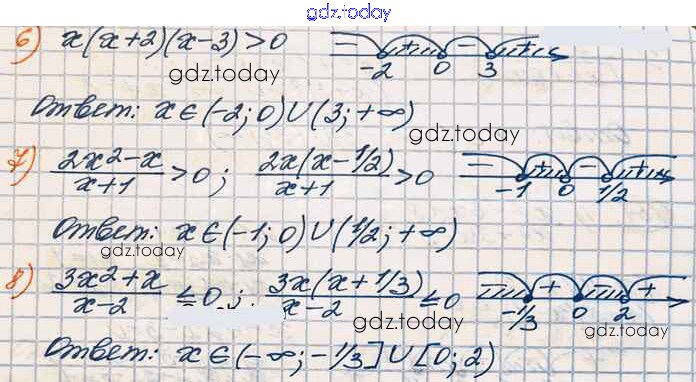 gdz.today
6) x(x+2)(x-3)>0 − + − + -2 0 3
gdz.today
Ответ: x∈(-2; 0)∪(3; +∞)
gdz.today
7) (2x²-x)/(x+1)>0; (2x(x-1/2))/(x+1)>0 − + − + -1 0 1/2
Ответ: x∈(-1; 0)∪(1/2; +∞)
gdz.today
8) (3x²+x)/(x-2)≤0; (3x(x+1/3))/(x-2)≤0 − + − + -1/3 0 2
gdz.today
gdz.today
Ответ: x∈(-∞; -1/3]∪[0; 2)